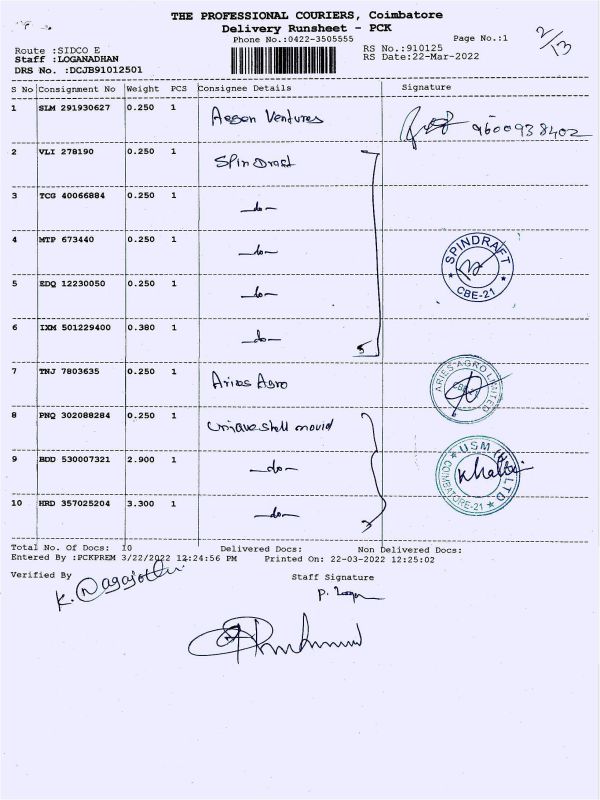 THE PROFESSIONAL COURIERS, Coimbatore
Delivery Runsheet - PCK
Phone No.:0422-3505555
Page No.:1
2/13
Route :SIDCO E
RS No.:910125
Staff :LOGANADHAN
RS Date:22-Mar-2022
DRS No. :DCJB91012501
S No Consignment No Weight PCS Consignee Details Signature
1 SLM 291930627 0.250 1 Ventures 9600938402
2 VLI 278190 0.250 1
3 TCG 40066884 0.250 1 -do-
4 MTP 673440 0.250 1 -do-
SPINDRAFT
CBE-21
5 EDQ 12230050 0.250 1 -do-
6 IXM 501229400 0.380 1 -do- 5
7 TNJ 7803635 0.250 1 Aries Agro
ARIES AGRO LIMITED
CBE-21
8 PNQ 302088284 0.250 1
9 BDD 530007321 2.900 1 -do-
USM LTD
COIMBATORE-21
10 HRD 357025204 3.300 1 -do- 3
Total No. Of Docs: 10 Delivered Docs: Non Delivered Docs:
Entered By :PCKPREM 3/22/2022 12:24:56 PM Printed On: 22-03-2022 12:25:02
Verified By Staff Signature